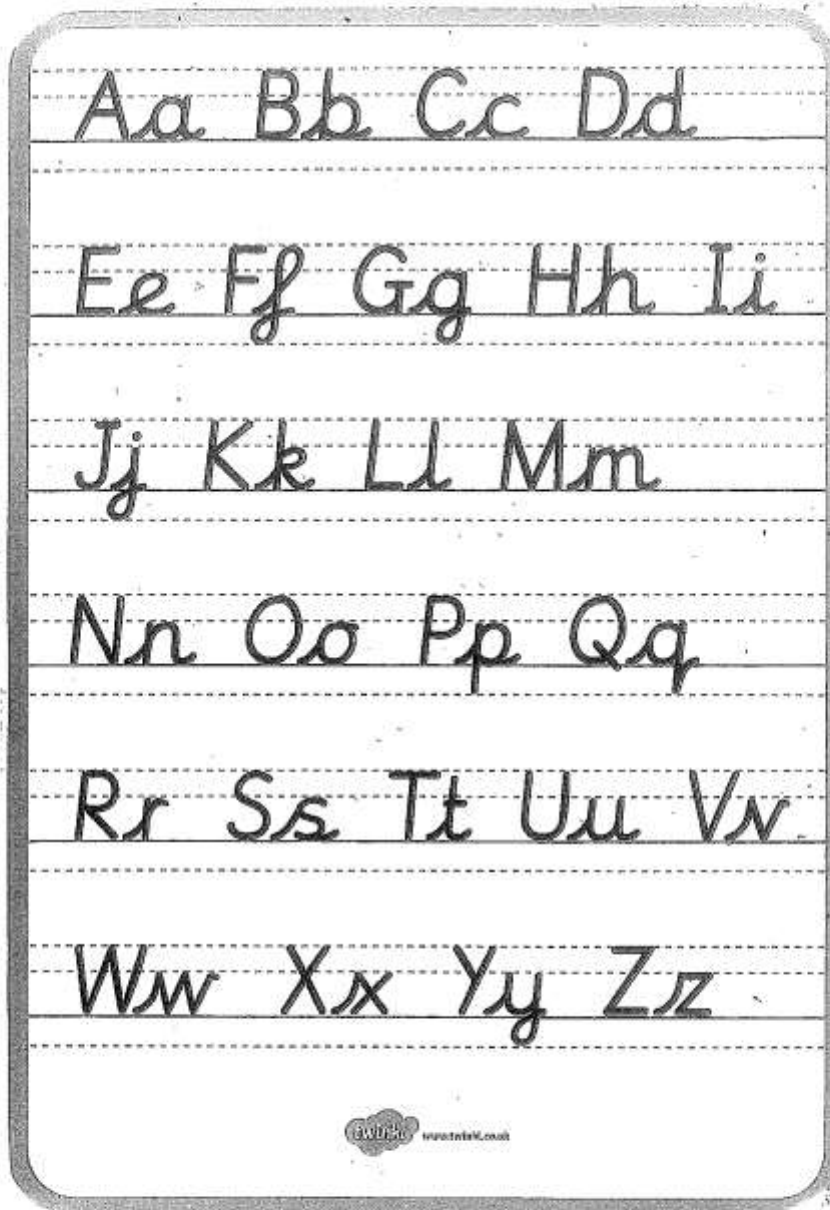 Aa Bb Cc Dd
Ee Ff Gg Hh Ii
Jj Kk Ll Mm
Nn Oo Pp Qq
Rr Ss Tt Uu Vv
Ww Xx Yy Zz
twinkl www.twinkl.co.uk